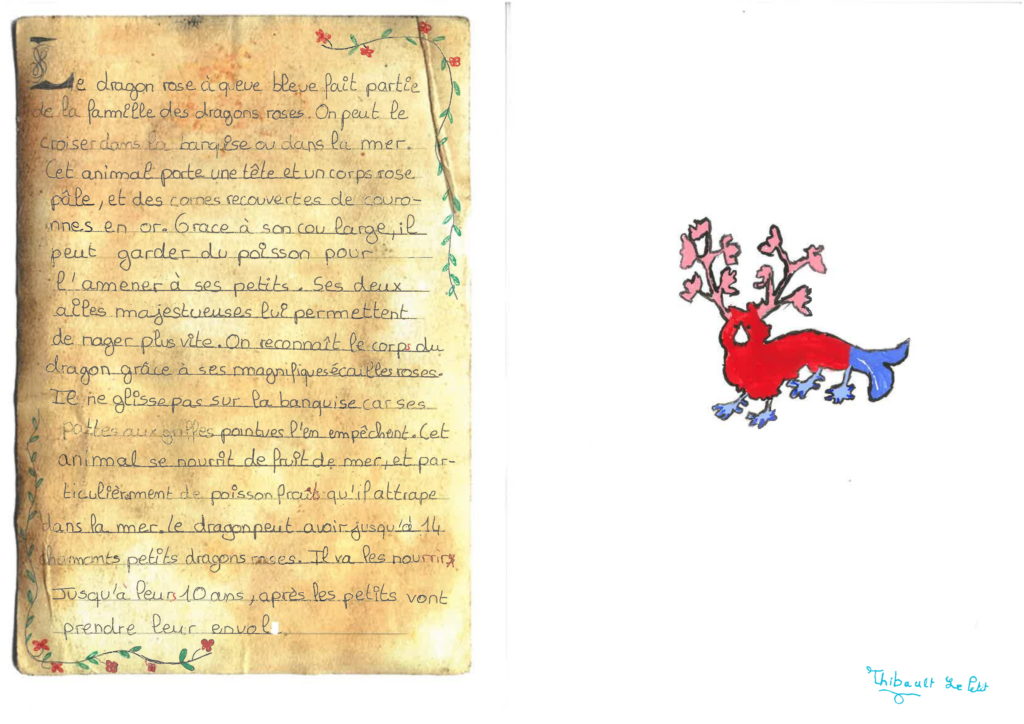 Le dragon rose à queue bleue fait partie
de la famille des dragons roses. On peut le
croiser dans la banquise ou dans la mer.
Cet animal porte une tête et un corps rose
pâle, et des cornes recouvertes de couro-
nnes en or. Grace à son cou large, il
peut garder du poisson pour
l'amener à ses petits. Ses deux
ailes majestueuses lui permettent
de nager plus vite. On reconnaît le corps du
dragon grâce à ses magnifiques écailles roses.
Il ne glisse pas sur la banquise car ses
pattes aux griffes pointues l'en empêchent. Cet
animal se nourrit de fruit de mer, et par-
ticulièrement de poisson frait qu'il attrape
dans la mer. le dragon peut avoir jusqu'à 14
charmants petits dragons roses. Il va les nourrir
Jusqu'à leurs 10 ans, après les petits vont
prendre leur envol.
Thibault Le Petit